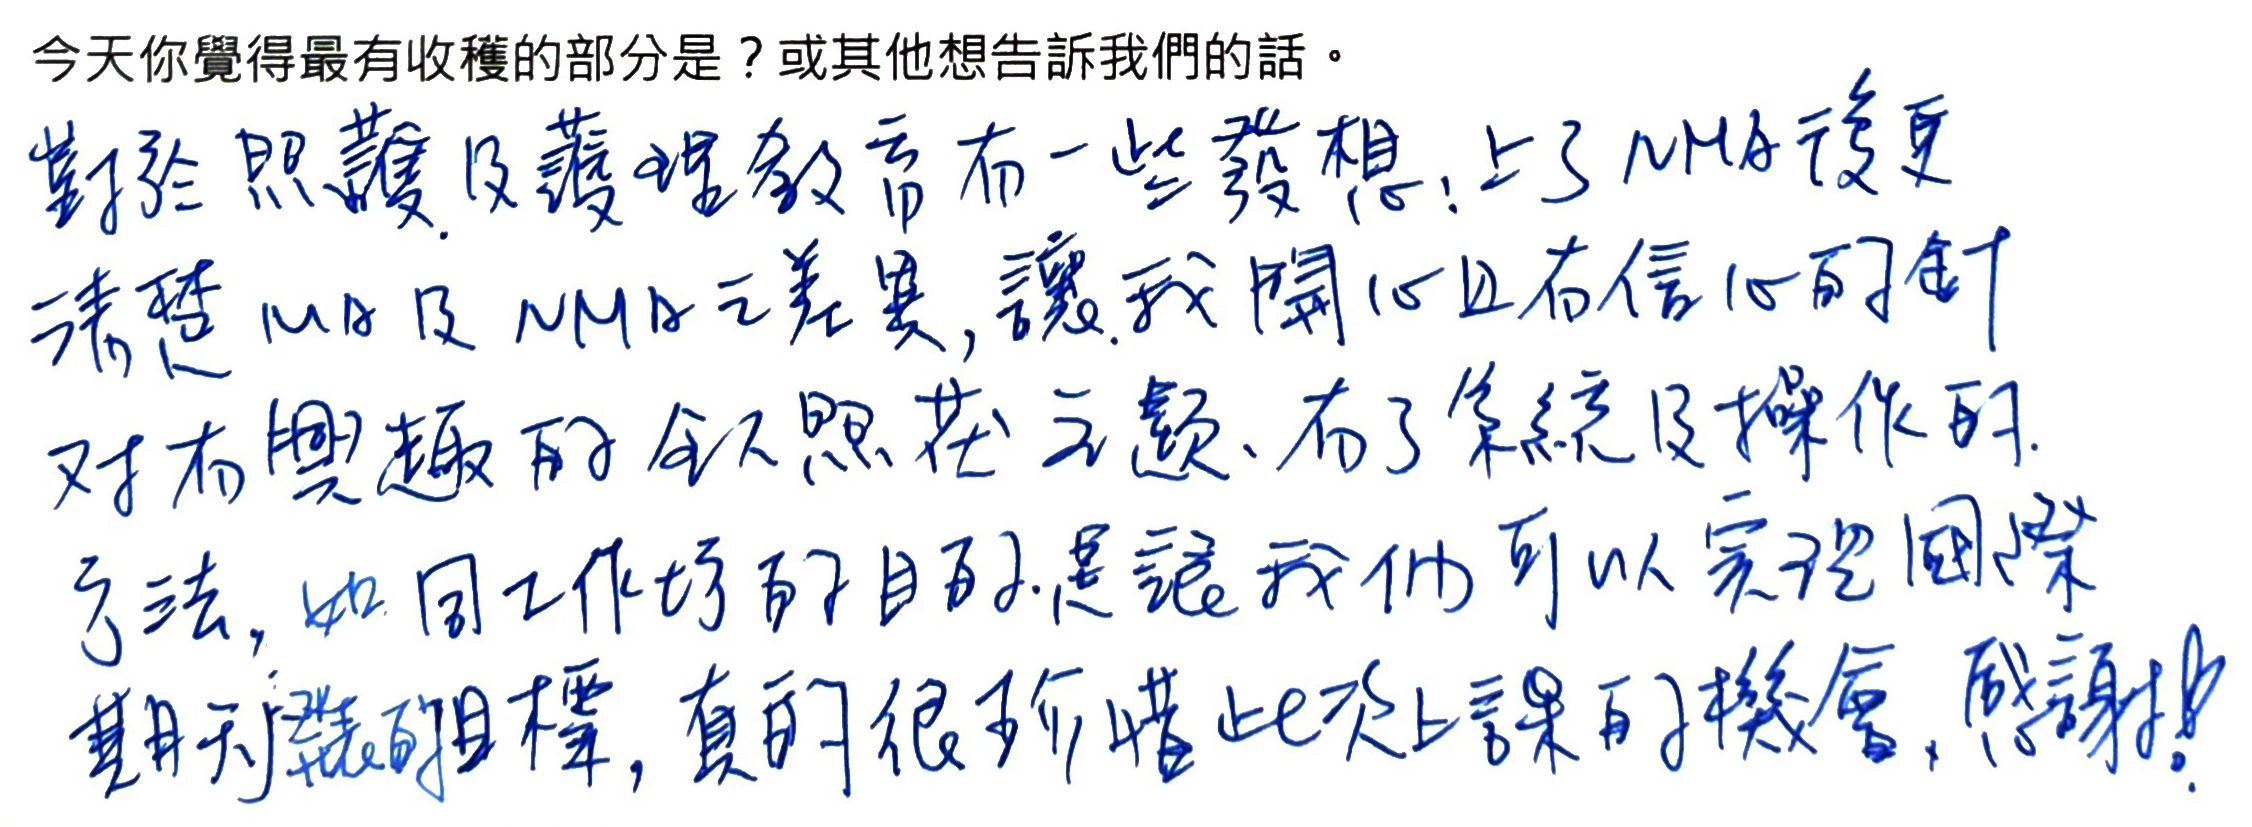 今天你覺得最有收穫的部分是？或其他想告訴我們的話。
對於照護及護理教育有一些發想，上了NMA後更
清楚MA及NMA之差異，讓我開心且有信心的針
对有興趣的 照 主題、有了系統及操作的
方法，如同工作坊的目的是讓我們可以實現國際
期刊發表的目標，真的很珍惜此次上課的機會，感謝!